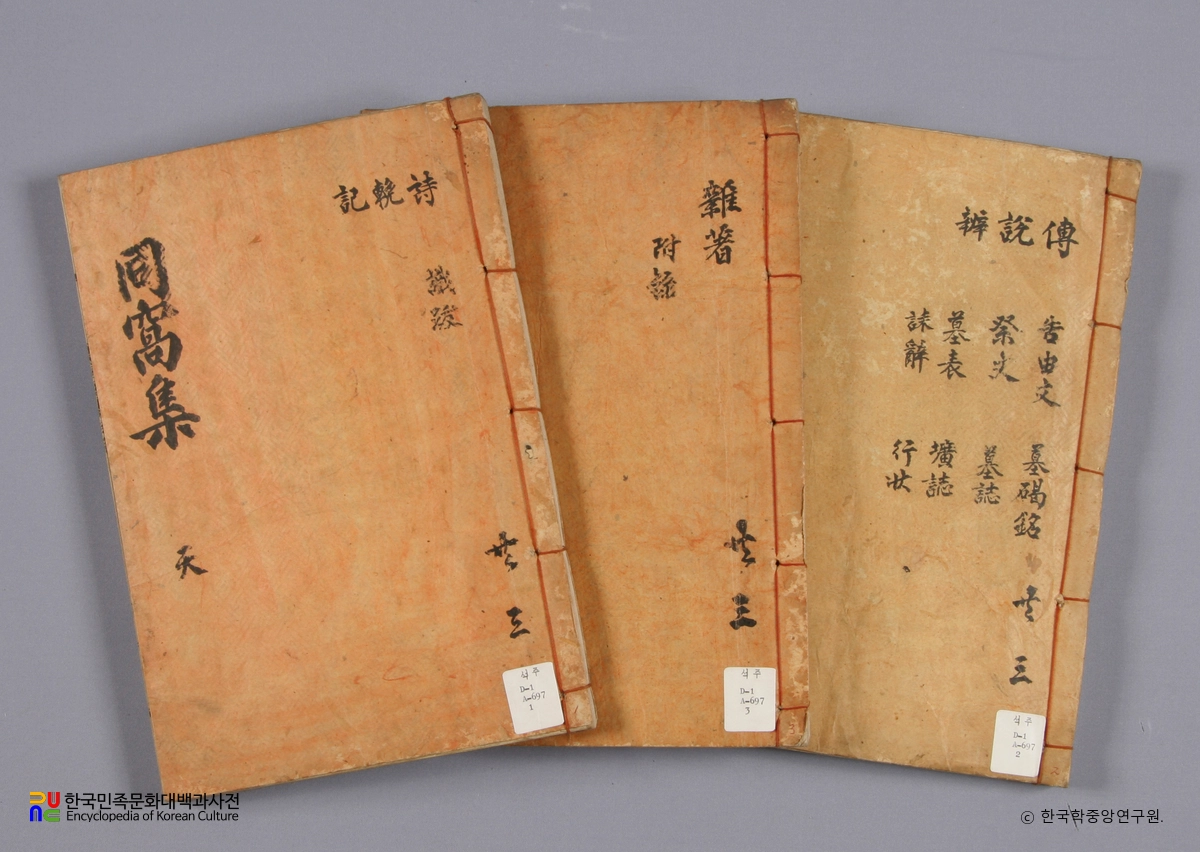 同窩集
天
詩輓記
識跋
共三
석주
D-1
A-697
1
雜著
附錄
共三
석주
D-1
A-697
3
傳說辨
告由文
祭文
墓表
誄辭
墓碣銘
墓誌
壙誌
行狀
共三
석주
D-1
A-697
2
한국민족문화대백과사전
Encyclopedia of Korean Culture
ⓒ 한국학중앙연구원.